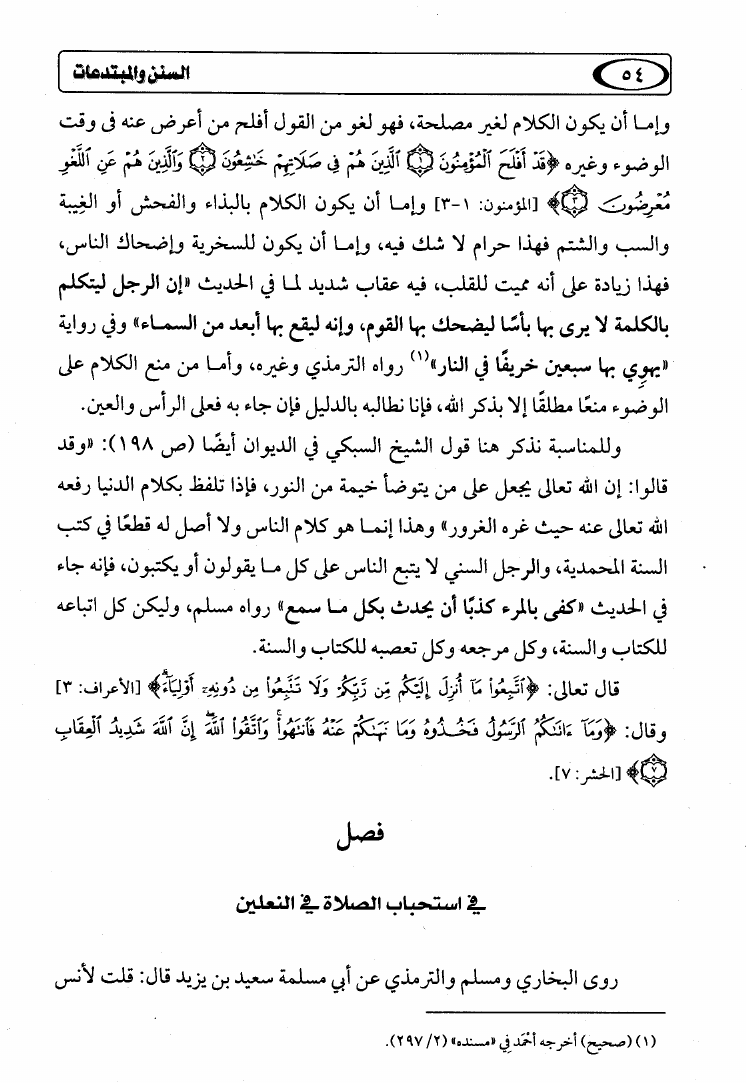 ٥٤
السنن والمبتدعات
وإما أن يكون الكلام لغير مصلحة، فهو لغو من القول أفلح من أعرض عنه فى وقت
الوضوء وغيره ﴿قَدْ أَفْلَحَ الْمُؤْمِنُونَ ۝١ الَّذِينَ هُمْ فِي صَلَاتِهِمْ خَاشِعُونَ ۝٢ وَالَّذِينَ هُمْ عَنِ اللَّغْوِ
مُعْرِضُونَ ۝٣﴾ [المؤمنون: ١-٣] وإما أن يكون الكلام بالبذاء والفحش أو الغِيبة
والسب والشتم فهذا حرام لا شك فيه، وإما أن يكون للسخرية وإضحاك الناس،
فهذا زيادة على أنه مميت للقلب، فيه عقاب شديد لما في الحديث «إن الرجل ليتكلم
بالكلمة لا يرى بها بأسًا ليضحك بها القوم، وإنه ليقع بها أبعد من السماء» وفي رواية
«يهوِي بها سبعين خريفًا في النار»(١) رواه الترمذي وغيره، وأما من منع الكلام على
الوضوء منعًا مطلقًا إلا بذكر الله، فإنا نطالبه بالدليل فإن جاء به فعلى الرأس والعين.
وللمناسبة نذكر هنا قول الشيخ السبكي في الديوان أيضًا (ص ١٩٨): «وقد
قالوا: إن الله تعالى يجعل على من يتوضأ خيمة من النور، فإذا تلفظ بكلام الدنيا رفعه
الله تعالى عنه حيث غره الغرور» وهذا إنما هو كلام الناس ولا أصل له قطعًا في كتب
السنة المحمدية، والرجل السني لا يتبع الناس على كل ما يقولون أو يكتبون، فإنه جاء
في الحديث «كفى بالمرء كذبًا أن يحدث بكل ما سمع» رواه مسلم، وليكن كل اتباعه
للكتاب والسنة، وكل مرجعه وكل تعصبه للكتاب والسنة.
قال تعالى: ﴿اتَّبِعُوا مَا أُنزِلَ إِلَيْكُم مِّن رَّبِّكُمْ وَلَا تَتَّبِعُوا مِن دُونِهِ أَوْلِيَاءَ﴾ [الأعراف: ٣]
وقال: ﴿وَمَا ءَاتَاكُمُ الرَّسُولُ فَخُذُوهُ وَمَا نَهَاكُمْ عَنْهُ فَانتَهُوا وَاتَّقُوا اللَّهَ إِنَّ اللَّهَ شَدِيدُ الْعِقَابِ
۝٧﴾ [الحشر: ٧].
فصل
في استحباب الصلاة في النعلين
روى البخاري ومسلم والترمذي عن أبي مسلمة سعيد بن يزيد قال: قلت لأنس
(١) (صحيح) أخرجه أحْمَد فِي «مسنده» (٢/ ٢٩٧).